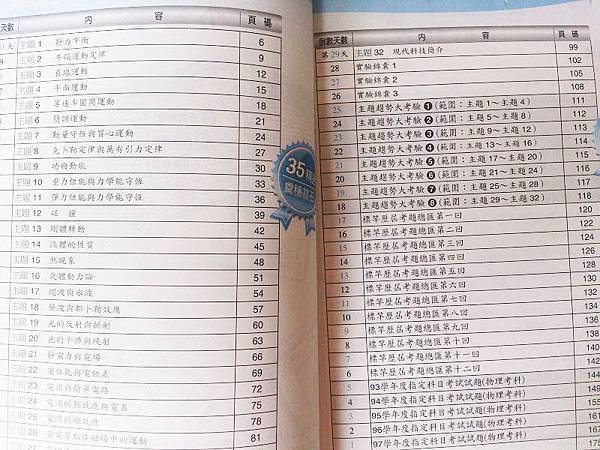 倒數天數 內 容 頁 碼
主題 1 靜力平衡 6
主題 2 牛頓運動定律 9
主題 3 直線運動 12
主題 4 平面運動 15
主題 5 等速率圓周運動 18
主題 6 簡諧運動 21
主題 7 動量守恆與質心運動 24
主題 8 克卜勒定律與萬有引力定律 27
主題 9 功與動能 30
主題 10 重力位能與力學能守恆 33
主題 11 彈力位能與力學能守恆 36
主題 12 碰 撞 39
主題 13 剛體轉動 42
主題 14 流體的性質 45
主題 15 熱現象 48
主題 16 氣體動力論 51
主題 17 繩波與水波 54
主題 18 聲波與都卜勒效應 57
主題 19 光的反射與折射 60
主題 20 光的干涉與繞射 63
主題 21 靜電力與電場 66
主題 22 電位能與電位差 69
主題 23 電流與簡單電路 72
主題 24 電流的熱效應與電表 75
主題 25 電流的磁效應 78
主題 26 帶電質點在磁場中的運動 81
35
倒數天數 內 容 頁 碼
第 29 天 主題 32 現代科技簡介 99
28 實驗錦囊 1 102
27 實驗錦囊 2 105
26 實驗錦囊 3 108
25 主題趨勢大考驗❶(範圍：主題 1～主題 4) 111
24 主題趨勢大考驗❷(範圍：主題 5～主題 8) 112
23 主題趨勢大考驗❸(範圍：主題 9～主題 12) 113
22 主題趨勢大考驗❹(範圍：主題 13～主題 16) 114
21 主題趨勢大考驗❺(範圍：主題 17～主題 20) 115
20 主題趨勢大考驗❻(範圍：主題 21～主題 24) 116
19 主題趨勢大考驗❼(範圍：主題 25～主題 28) 117
18 主題趨勢大考驗❽(範圍：主題 29～主題 32) 118
17 標竿歷屆考題總匯第一回 120
16 標竿歷屆考題總匯第二回 122
15 標竿歷屆考題總匯第三回
14 標竿歷屆考題總匯第四回
13 標竿歷屆考題總匯第五回
12 標竿歷屆考題總匯第六回
11 標竿歷屆考題總匯第七回
10 標竿歷屆考題總匯第八回
9 標竿歷屆考題總匯第九回
8 標竿歷屆考題總匯第十回
7 標竿歷屆考題總匯第十一回 140
6 標竿歷屆考題總匯第十二回 142
5 93學年度指定科目考試試題(物理考科) 144
4 94學年度指定科目考試試題(物理考科) 149
3 95學年度指定科目考試試題(物理考科)
2 96學年度指定科目考試試題(物理考科) 167
1 97學年度指定科目考試試題(物理考科) 175